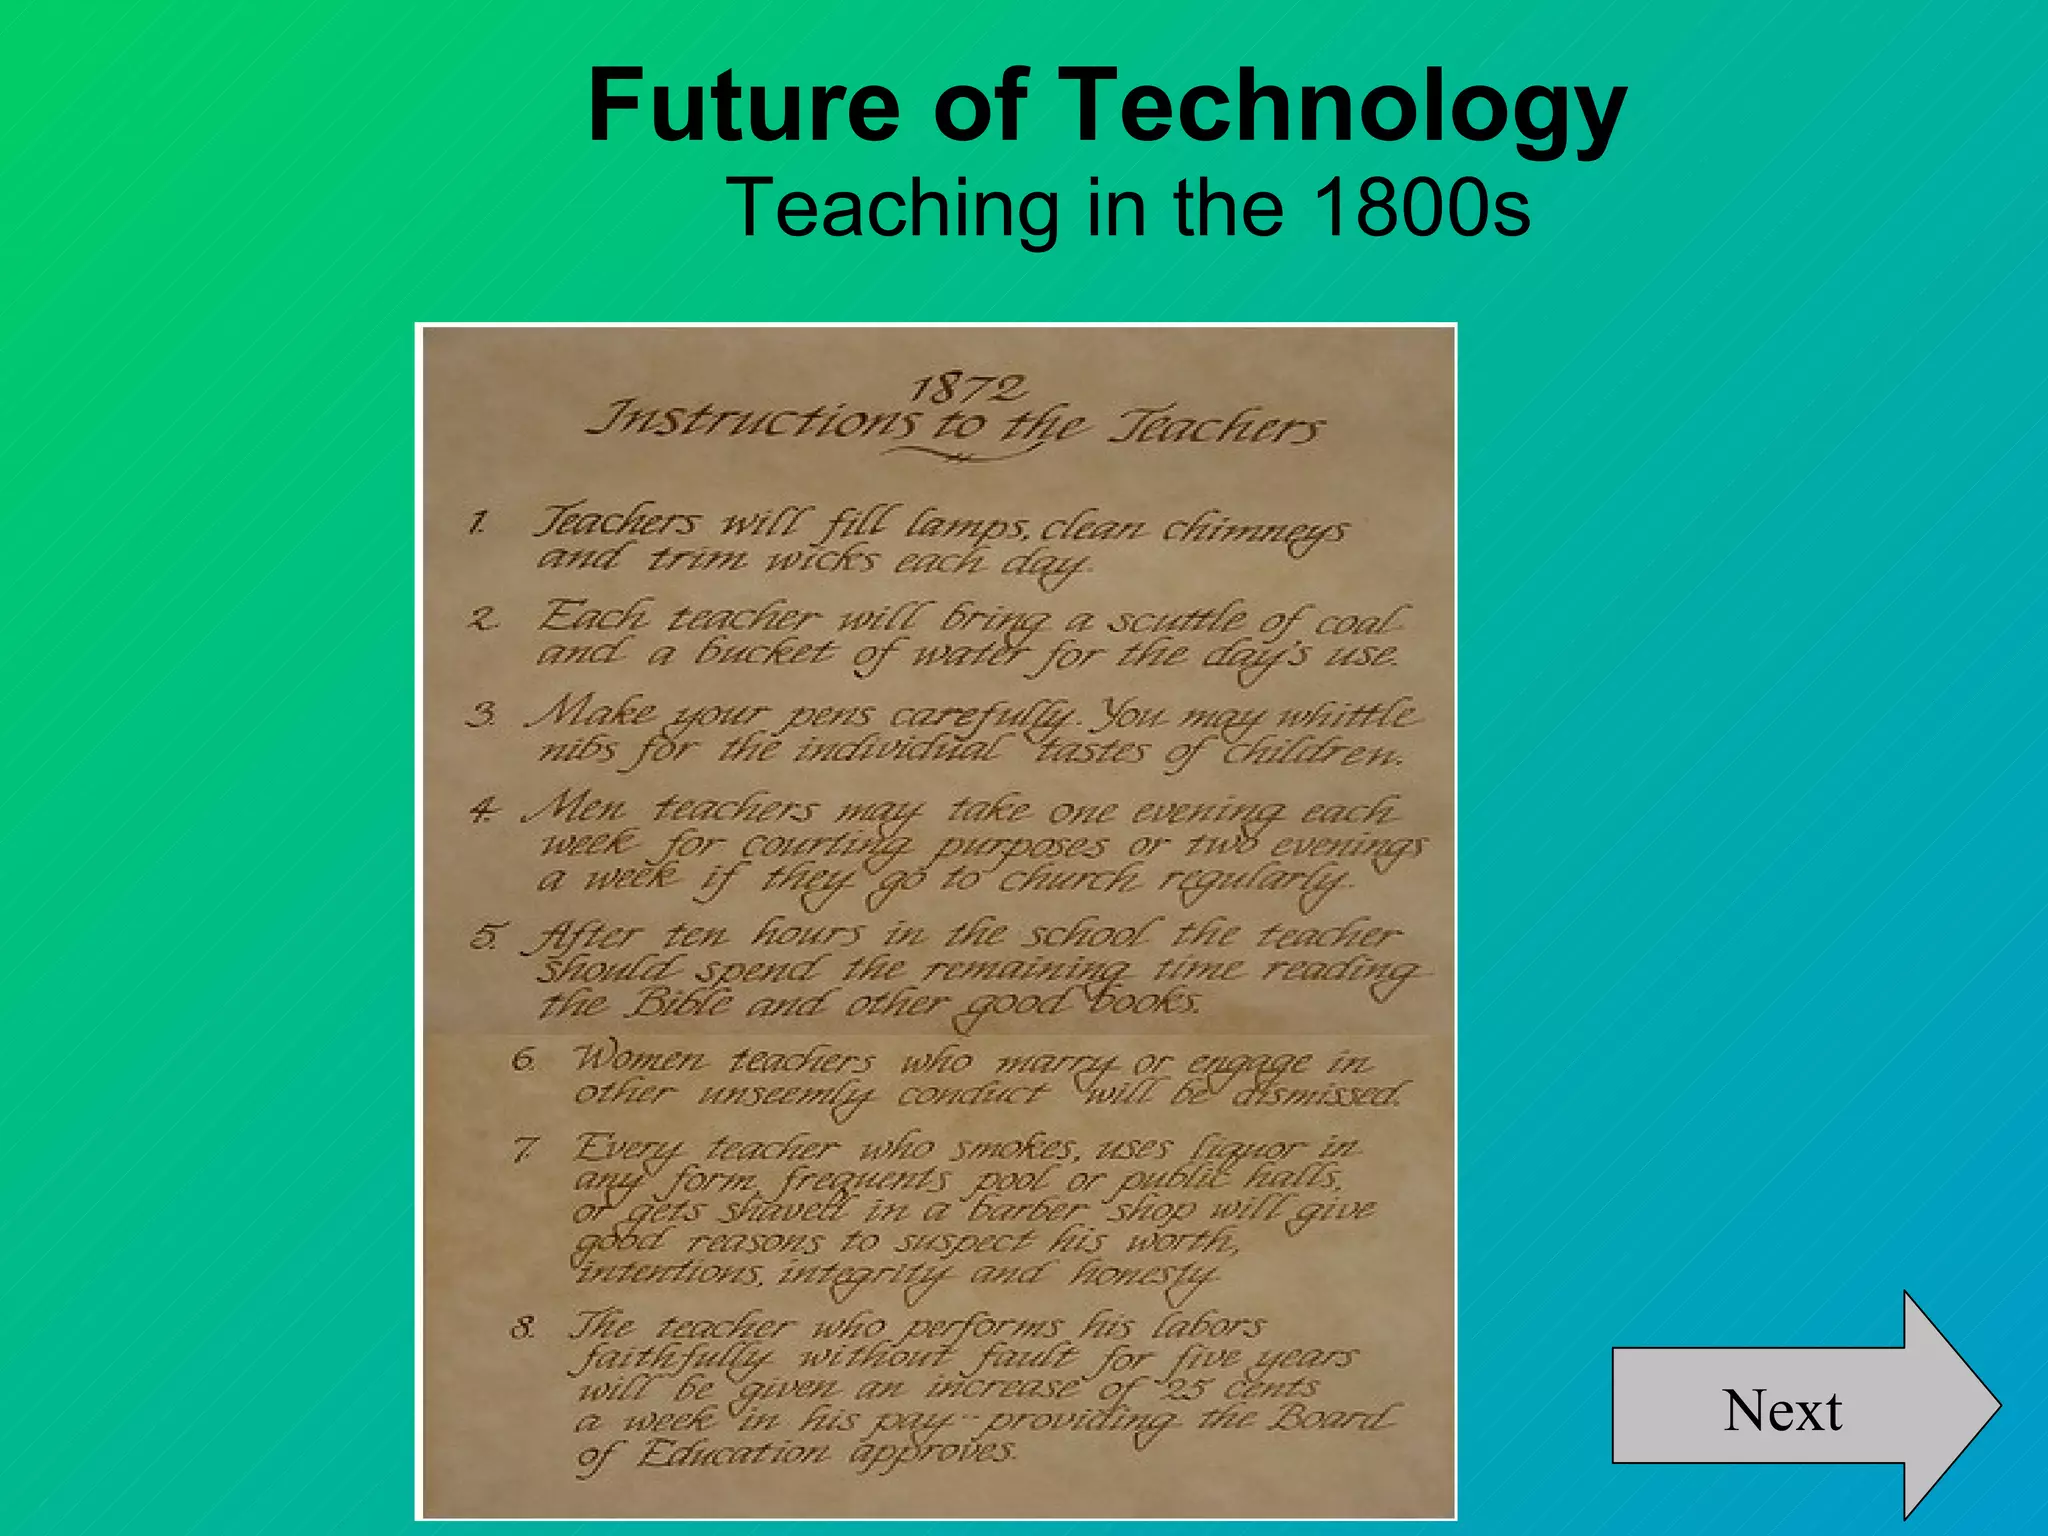 Future of Technology
Teaching in the 1800s
1872
Instructions to the Teachers
1. Teachers will fill lamps, clean chimneys
and trim wicks each day.
2. Each teacher will bring a scuttle of coal
and a bucket of water for the day's use.
3. Make your pens carefully. You may whittle
nibs for the individual tastes of children.
4. Men teachers may take one evening each
week for courting purposes or two evenings
a week if they go to church regularly.
5. After ten hours in the school the teacher
should spend the remaining time reading
the Bible and other good books.
6. Women teachers who marry or engage in
other unseemly conduct will be dismissed.
7. Every teacher who smokes, uses liquor in
any form, frequents pool or public halls,
or gets shaved in a barber shop will give
good reasons to suspect his worth,
intentions, integrity and honesty.
8. The teacher who performs his labors
faithfully without fault for five years
will be given an increase of 25 cents
a week in his pay -- providing the Board
of Education approves.
Next